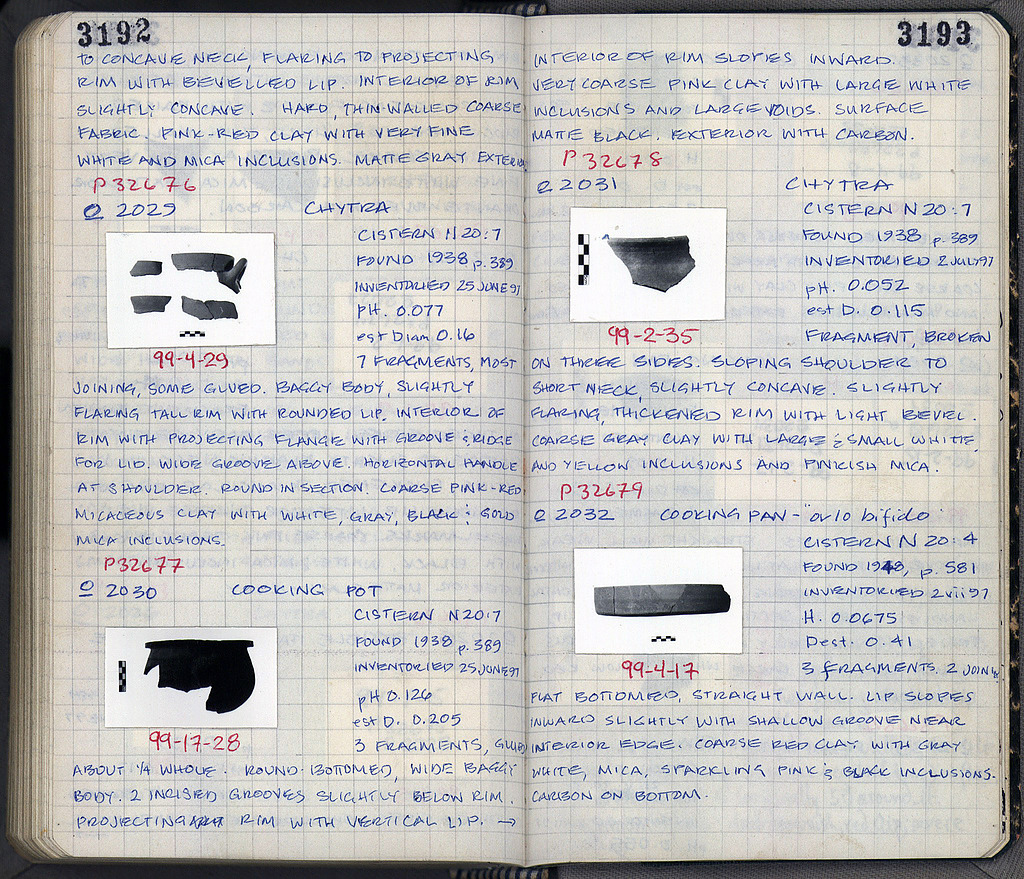 3192
TO CONCAVE NECK, FLARING TO PROJECTING
RIM WITH BEVELLED LIP. INTERIOR OF RIM
SLIGHTLY CONCAVE. HARD, THIN-WALLED COARSE
FABRIC. PINK-RED CLAY WITH VERY FINE
WHITE AND MICA INCLUSIONS. MATTE GRAY EXTERIOR
P 32676
Q 2029 CHYTRA
CISTERN N 20:7
FOUND 1938 p. 389
INVENTORIED 25 JUNE 97
pH. 0.077
est Diam 0.16
99-4-29
7 FRAGMENTS, MOST
JOINING, SOME GLUED. BAGGY BODY, SLIGHTLY
FLARING TALL RIM WITH ROUNDED LIP. INTERIOR OF
RIM WITH PROJECTING FLANGE WITH GROOVE & RIDGE
FOR LID. WIDE GROOVE ABOVE. HORIZONTAL HANDLE
AT SHOULDER. ROUND IN SECTION. COARSE PINK-RED
MICACEOUS CLAY WITH WHITE, GRAY, BLACK & GOLD
MICA INCLUSIONS.
P32677
Q 2030 COOKING POT
CISTERN N 20:7
FOUND 1938 p. 389
INVENTORIED 25 JUNE 97
pH 0.126
est D. 0.205
99-17-28
3 FRAGMENTS, GLUED
ABOUT 1/4 WHOLE. ROUND-BOTTOMED, WIDE BAGGY
BODY. 2 INCISED GROOVES SLIGHTLY BELOW RIM.
PROJECTING RIM WITH VERTICAL LIP. →
3193
INTERIOR OF RIM SLOPES INWARD.
VERY COARSE PINK CLAY WITH LARGE WHITE
INCLUSIONS AND LARGE VOIDS. SURFACE
MATTE BLACK. EXTERIOR WITH CARBON.
P 32678
Q 2031 CHYTRA
CISTERN N 20:7
FOUND 1938 p. 389
INVENTORIED 2 JULY 97
pH. 0.052
est D. 0.115
99-2-35
FRAGMENT, BROKEN
ON THREE SIDES. SLOPING SHOULDER TO
SHORT NECK, SLIGHTLY CONCAVE. SLIGHTLY
FLARING, THICKENED RIM WITH LIGHT BEVEL.
COARSE GRAY CLAY WITH LARGE & SMALL WHITE
AND YELLOW INCLUSIONS AND PINKISH MICA.
P32679
Q 2032 COOKING PAN - "orlo bifido"
CISTERN N 20:4
FOUND 1948, p. 581
INVENTORIED 2 vii 97
H. 0.0675
Dest. 0.41
99-4-17
3 FRAGMENTS. 2 JOIN &
FLAT BOTTOMED, STRAIGHT WALL. LIP SLOPES
INWARD SLIGHTLY WITH SHALLOW GROOVE NEAR
INTERIOR EDGE. COARSE RED CLAY WITH GRAY
WHITE, MICA, SPARKLING PINK & BLACK INCLUSIONS.
CARBON ON BOTTOM.